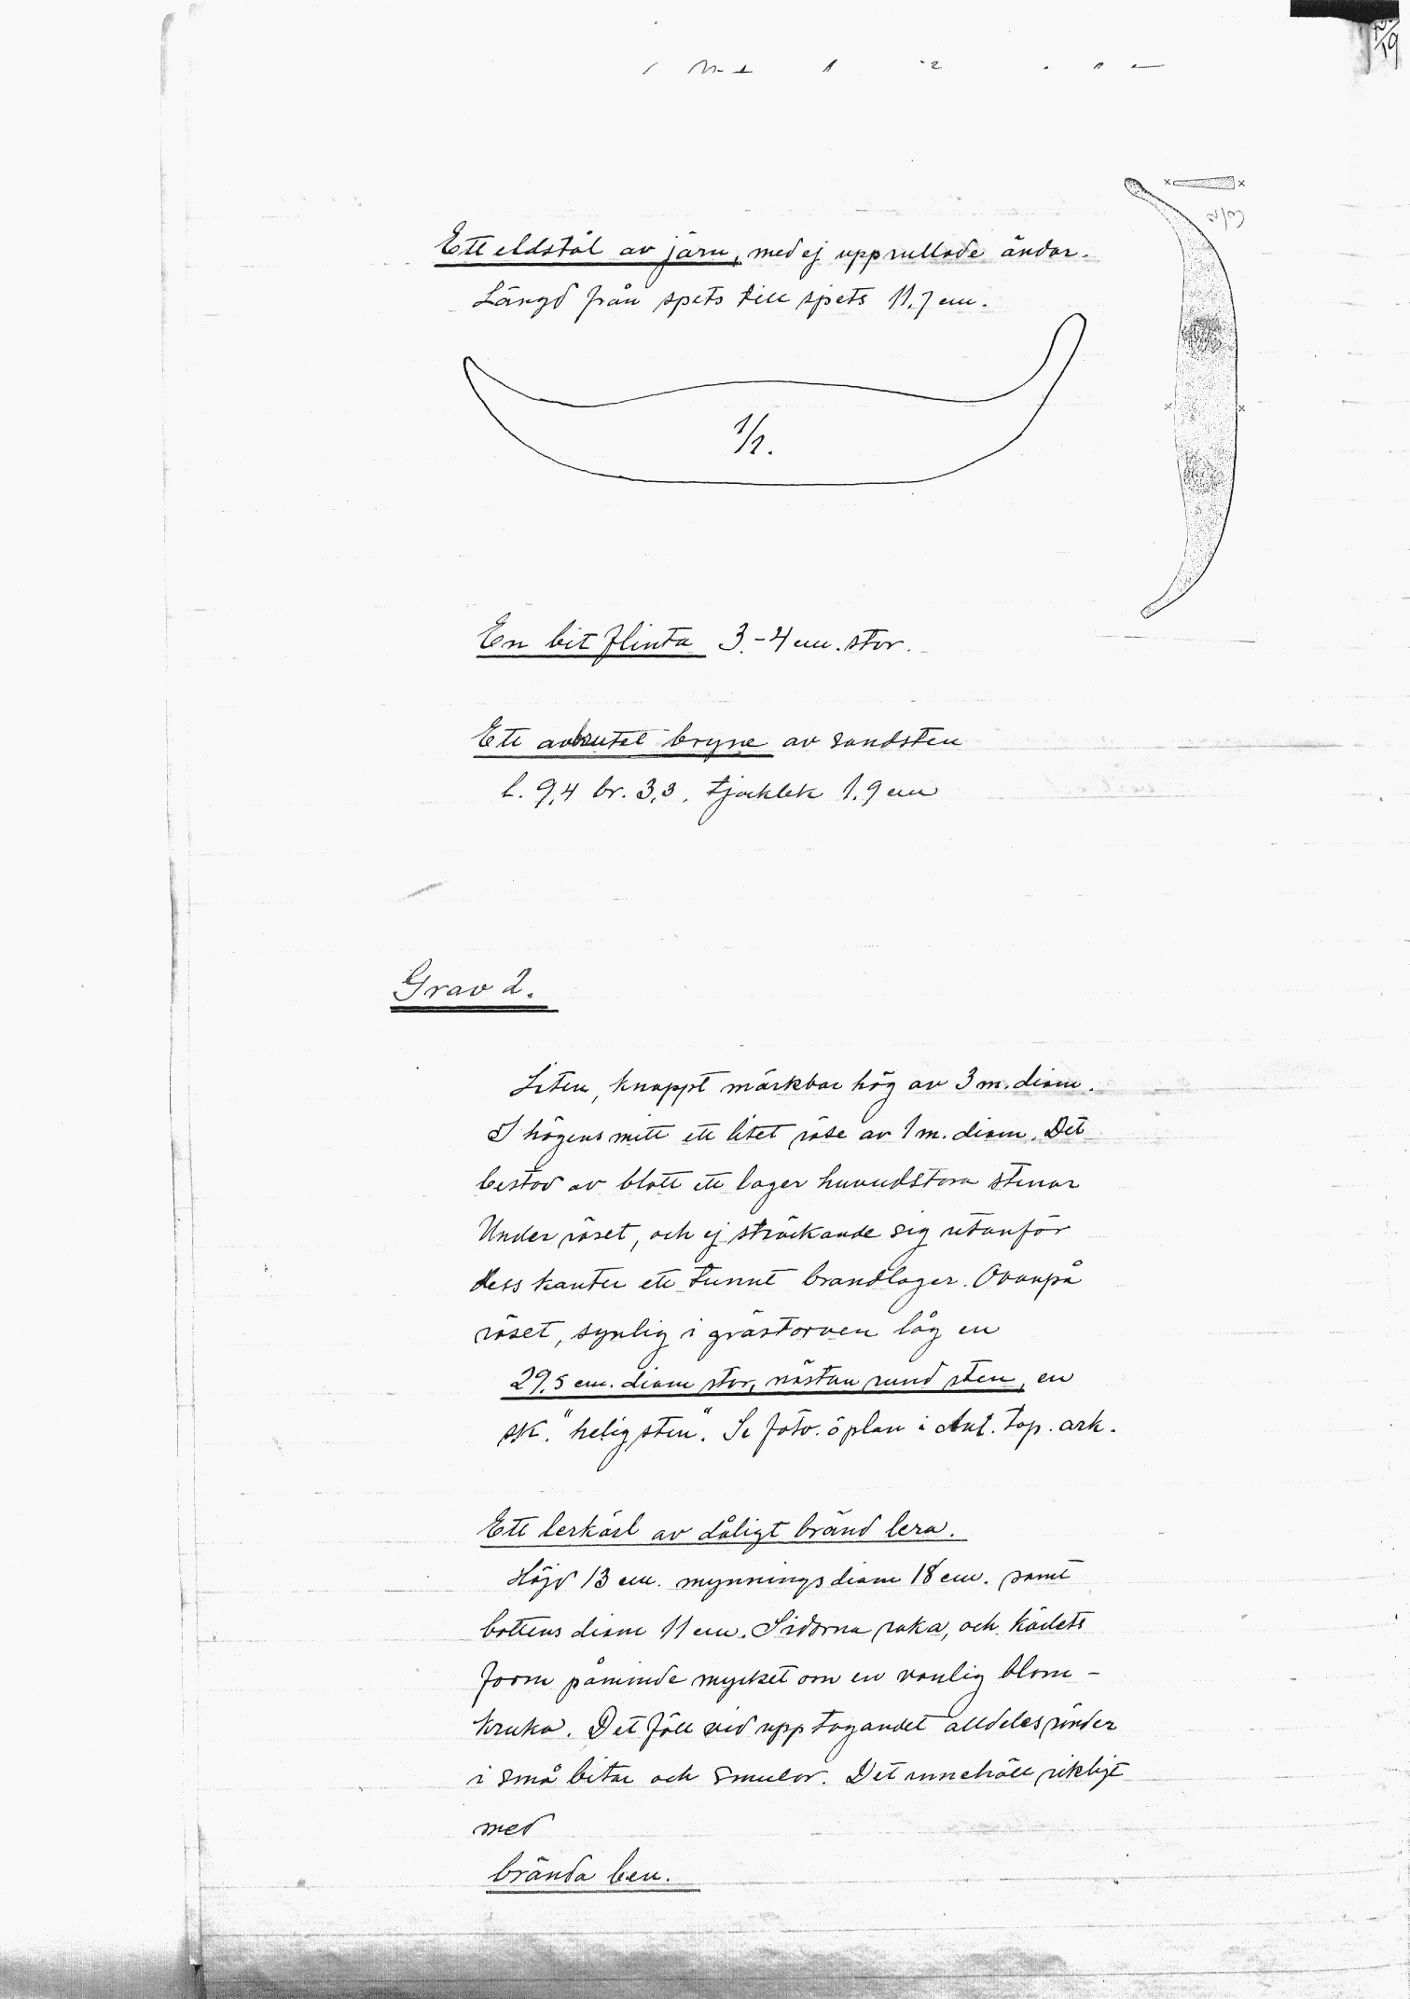 Ett eldstål av järn, med ej upprullade ändar.
Längd från spets till spets 11,7 cm.
2/3
1/1.
En bit flinta 3-4 cm. stor.
Ett avbrutet bryne av sandsten
l. 9,4 br. 3,3, tjocklek 1,9 cm
Grav 2.
Liten, knappt märkbar hög av 3 m. diam.
I högens mitt ett litet röse av 1 m. diam. Det
bestod av blott ett lager huvudstora stenar
Under röset, och ej sträckande sig utanför
dess kanter ett tunnt brandlager. Ovanpå
röset, synlig i grästorven låg en
29,5 cm. diam stor, nästan rund sten, en
sk. "helig sten". Se foto. o plan i Ant. top. ark.
Ett lerkärl av dåligt bränd lera.
Höjd 13 cm. mynningsdiam 18 cm. samt
bottens diam 11 cm. Sidorna raka, och kärlets
form påminde mycket om en vanlig blom-
kruka. Det föll vid upptagandet alldeles sönder
i små bitar och smulor. Det innehöll rikligt
med
brända ben.